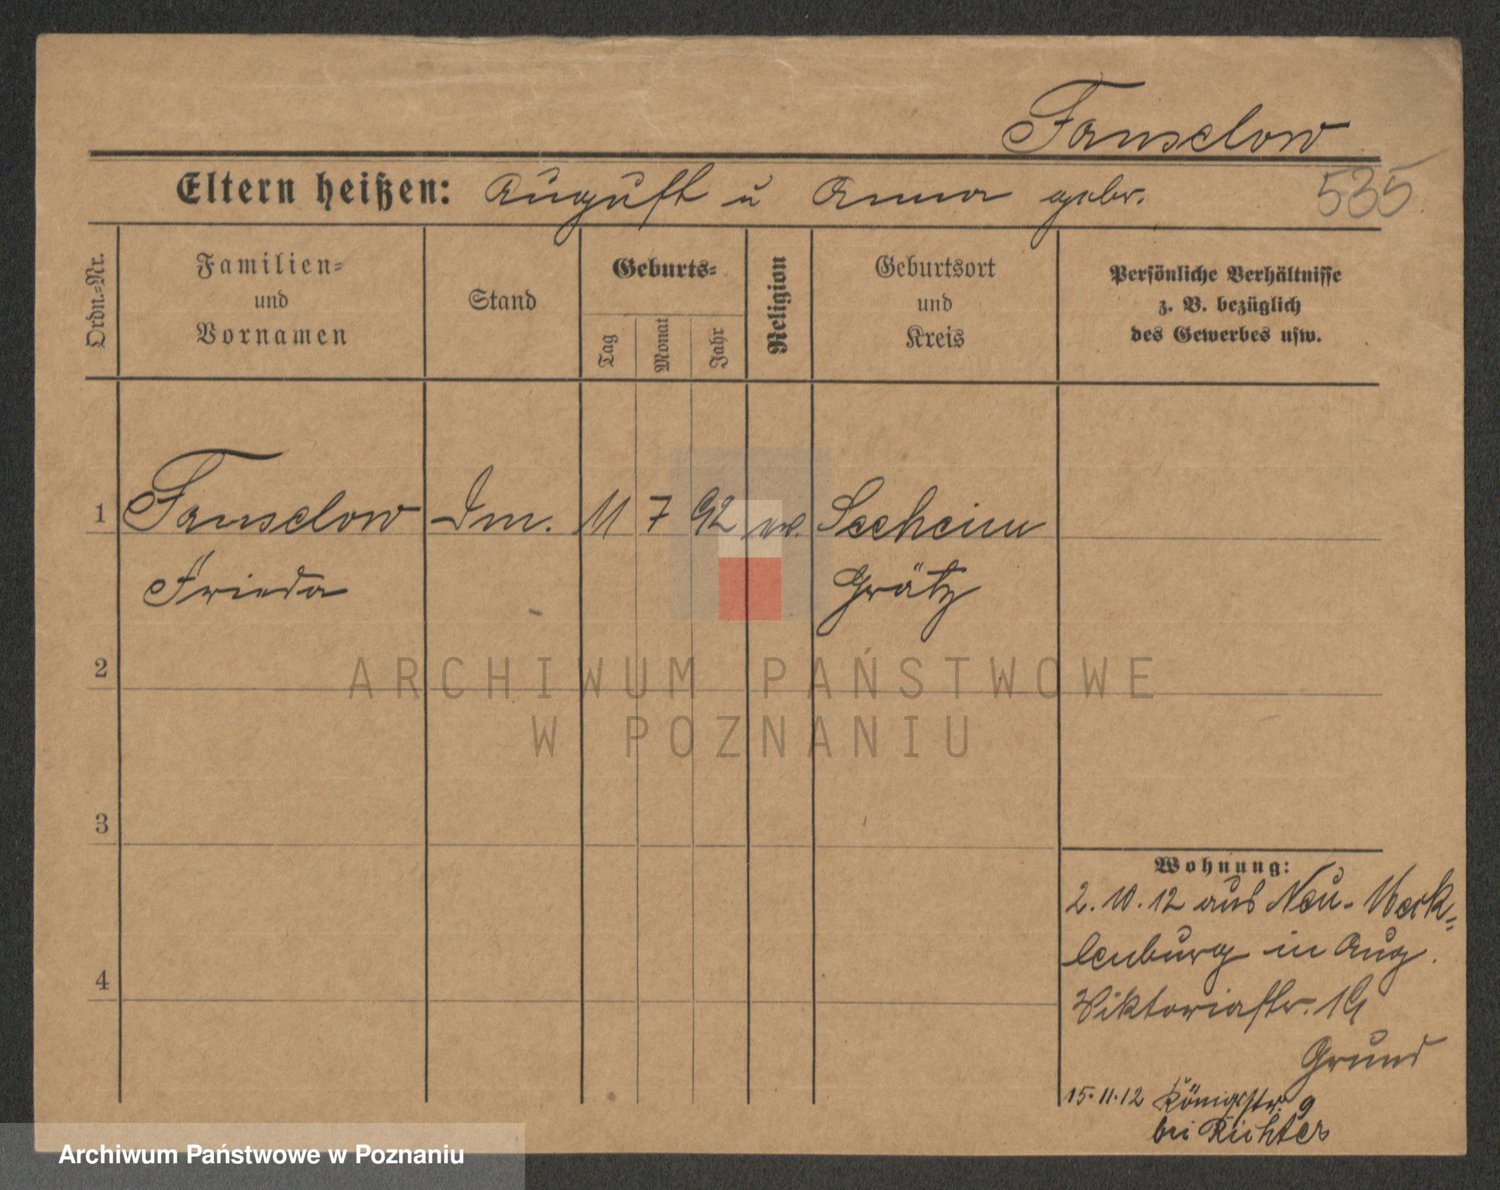 Fanselow
Eltern heißen: August u Anna gebr.
535
Ordn.=Nr.
Familien=
und
Vornamen
Stand
Geburts=
Tag
Monat
Jahr
Religion
Geburtsort
und
Kreis
Persönliche Verhältnisse
z. B. bezüglich
des Gewerbes usw.
1 Fanselow 11 7 92 ev. Seeheim
Frieda Grätz
2
ARCHIWUM PAŃSTWOWE
W POZNANIU
3
4
Wohnung:
2. 10. 12 aus Neu-Meck=
lenburg in Aug.
Viktoriastr. 19
Grund
15.11.12 Königstr. 9
bei Richter
Archiwum Państwowe w Poznaniu